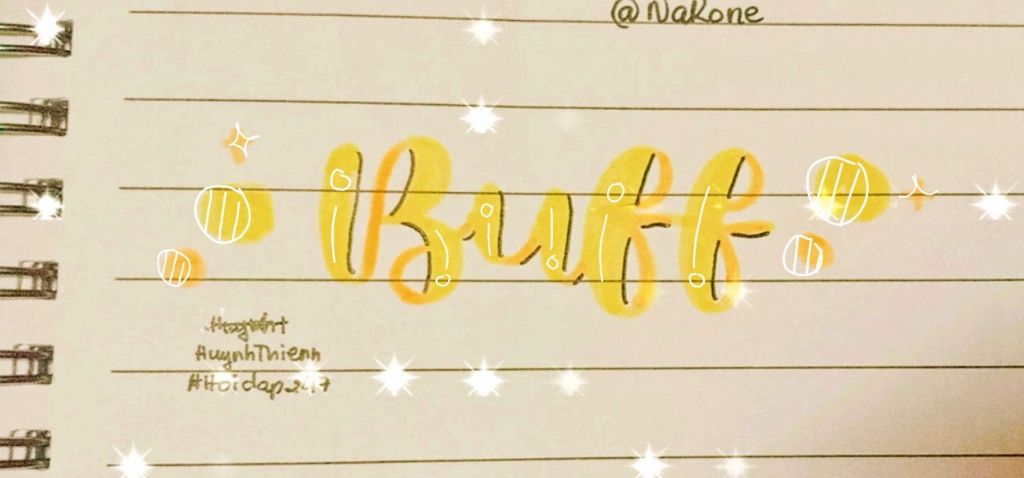 @NaKone
Buff
HuynhThienn
#Hoidap247